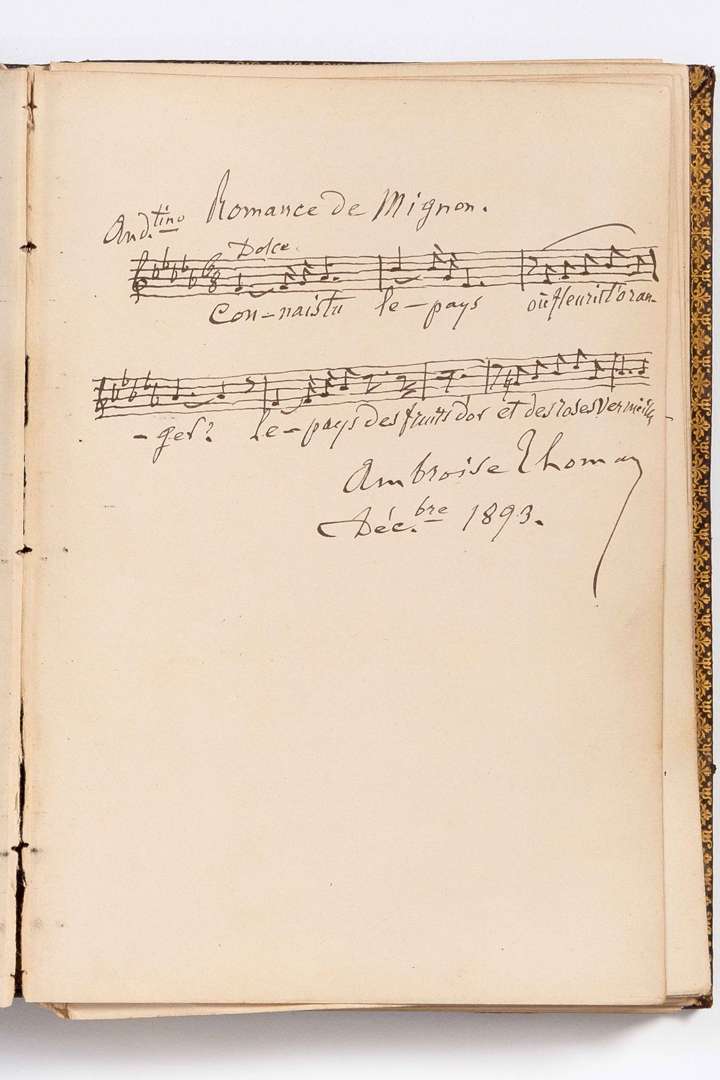 And.tino Romance de Mignon.
Dolce.
6/8
Con-nais tu le-pays où fleurit l'oran-
-ger? le-pays des fruits d'or et des roses vermeilles
Ambroise Thomas
Déc.bre 1893.